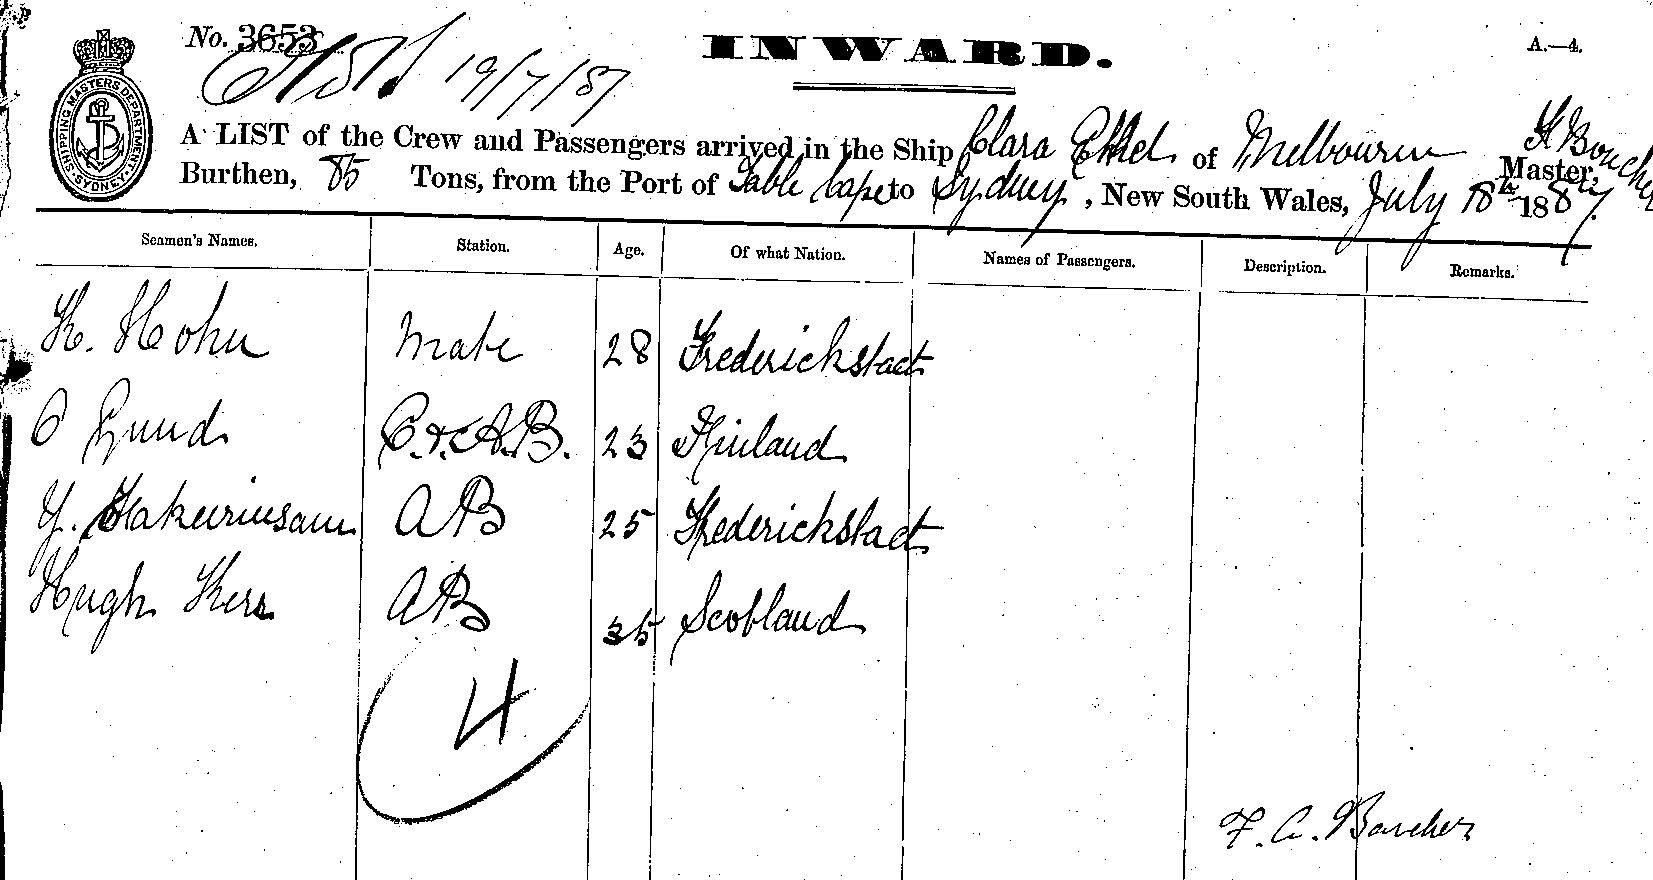 No. 3653
19/7/87
INWARD.
A.—4.
SHIPPING MASTERS DEPARTMENT SYDNEY
A LIST of the Crew and Passengers arrived in the Ship Clara Ethel of Melbourne Boucher Master,
Burthen, 85 Tons, from the Port of Table Cape to Sydney, New South Wales, July 18th 1887.
Seamen's Names. Station. Age. Of what Nation. Names of Passengers. Description. Remarks.
Mate 28 Frederickstadt
O Lund C. & A.B. 23 Finland
AB 25 Frederickstadt
Hugh Kerr AB 35 Scotland
4
F. A. Boucher